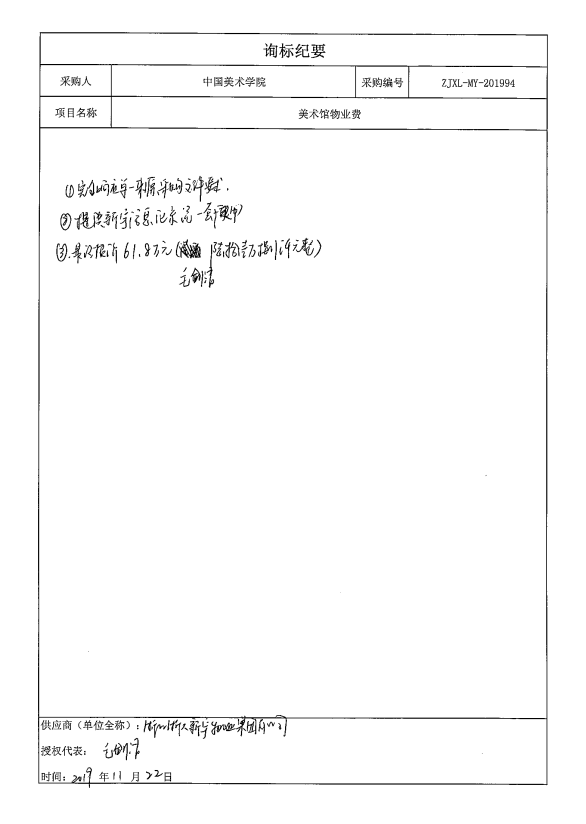 询标纪要
采购人 中国美术学院 采购编号 ZJXL-MY-201994
项目名称 美术馆物业费
①完全响应单一来源采购文件要求.
②提供新宇信息记录流一套
③.最终报价61.8万元( 陆拾壹万捌仟元整)
毛剑清
供应商（单位全称）: 浙江浙大新宇物业集团有公司
授权代表: 毛剑清
时间: 2019 年 11 月 22 日